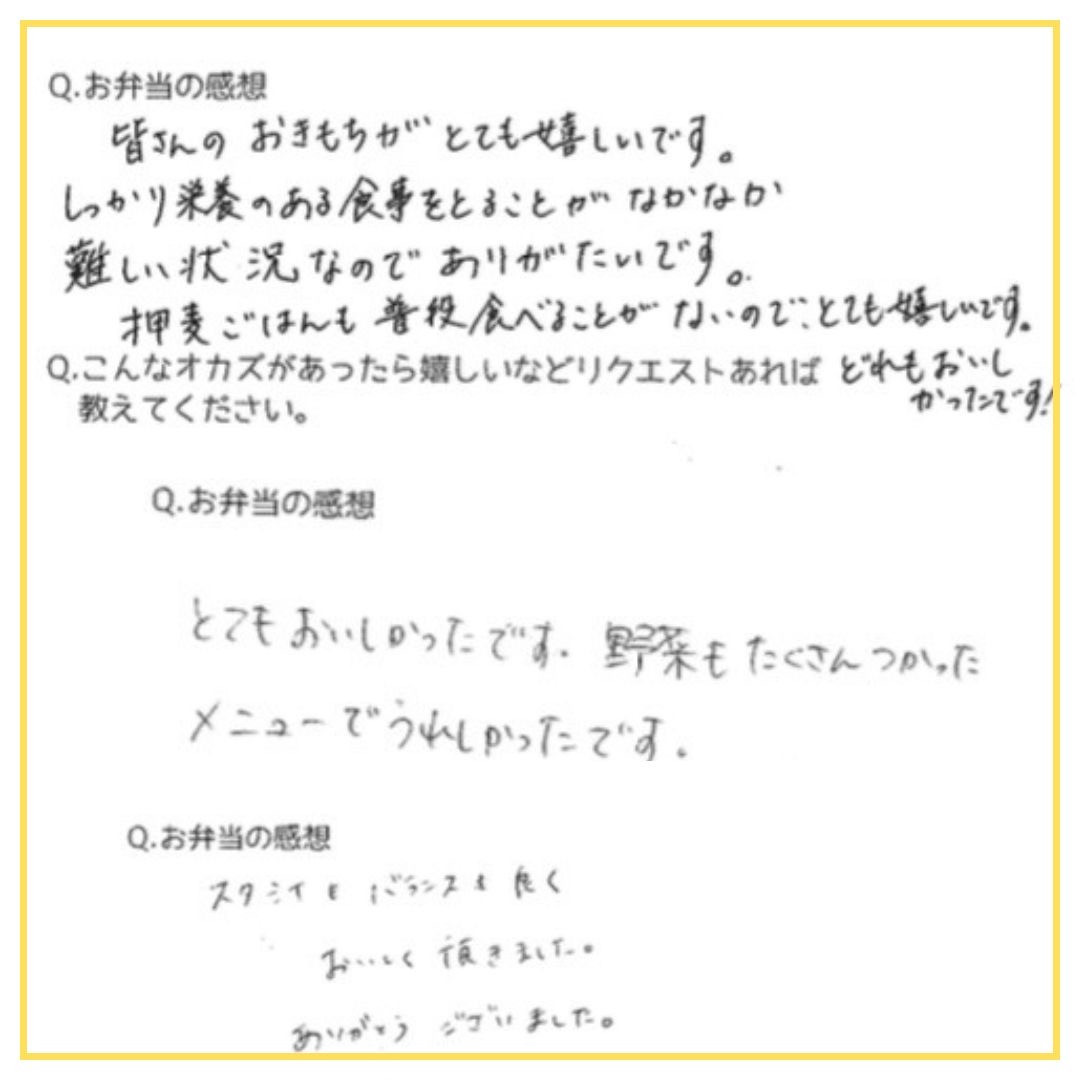 Q.お弁当の感想
皆さんの おきもちが とても嬉しいです。
しっかり栄養のある食事をとることが なかなか
難しい状況なので ありがたいです。
押麦ごはんも 普段食べることが ないので、とても嬉しいです。
Q.こんなオカズがあったら嬉しいなどリクエストあれば どれもおいし
教えてください。 かったです!
Q.お弁当の感想
とてもおいしかったです。野菜もたくさんつかった
メニューでうれしかったです。
Q.お弁当の感想
バランスも良く
おいしく頂きました。
ありがとうございました。